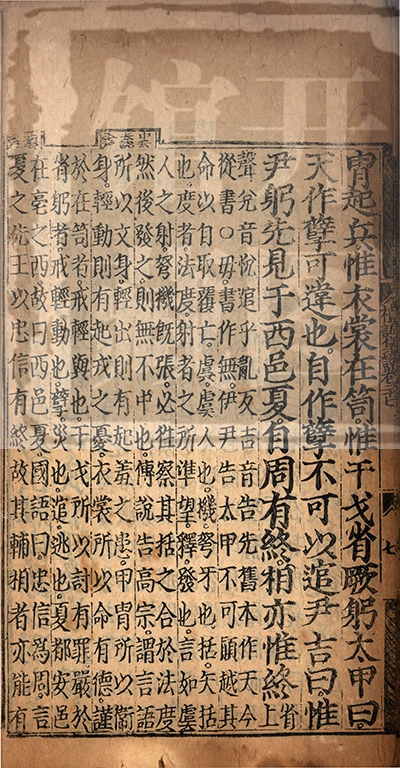 冑起兵惟衣裳在笥惟干戈省厥躬太甲曰
天作孽可違也自作孽不可以逭尹吉曰惟
尹躬先見于西邑夏自周有終相亦惟終省上
聲兌音悅逭乎亂反吉音告先舊本作天今
從書〇毋書作無伊尹告太甲不可顛越其
命以自取覆亡虞虞人也機弩牙也括矢括
也度者法度射者之所準望釋發也言如虞
人之射弩機既張必往察其括之合於法度
然後發之則無不中也傳說告高宗謂言語
所以文身輕出則有起羞之患甲冑所以衛
身輕動則有起戎之憂衣裳所以命有德謹
於在笥者戒輕與也干戈所以討有罪嚴於
省躬者戒輕動也孽災也逭逃也夏都安邑
在亳之西故曰西邑夏國語曰忠信爲周言
夏之先王以忠信有終故其輔相者亦能有
七